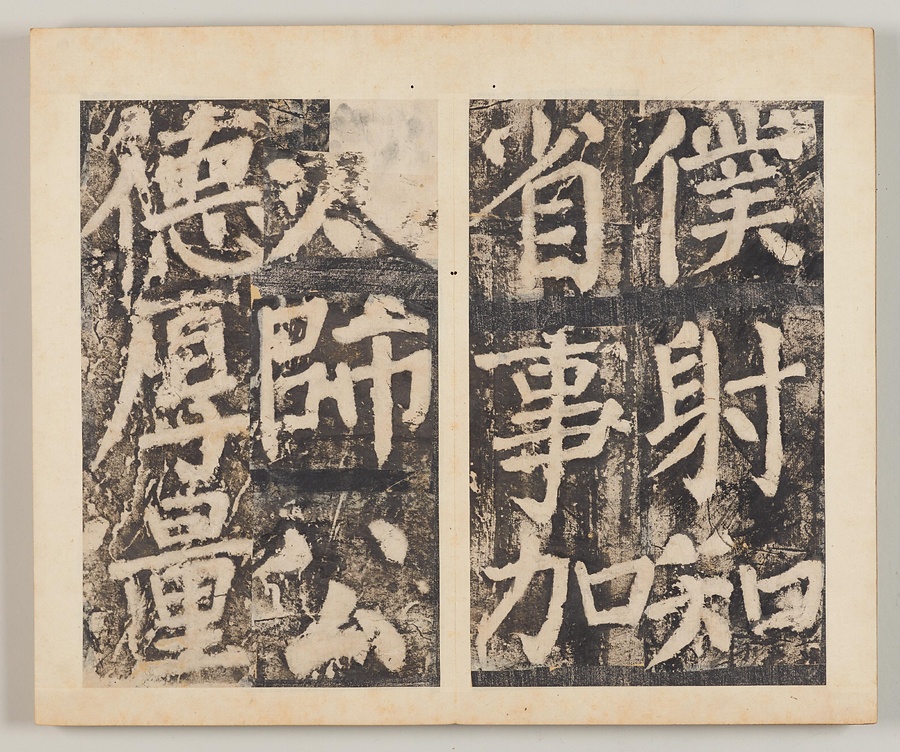 僕射知
省事加
太師公
德厚量